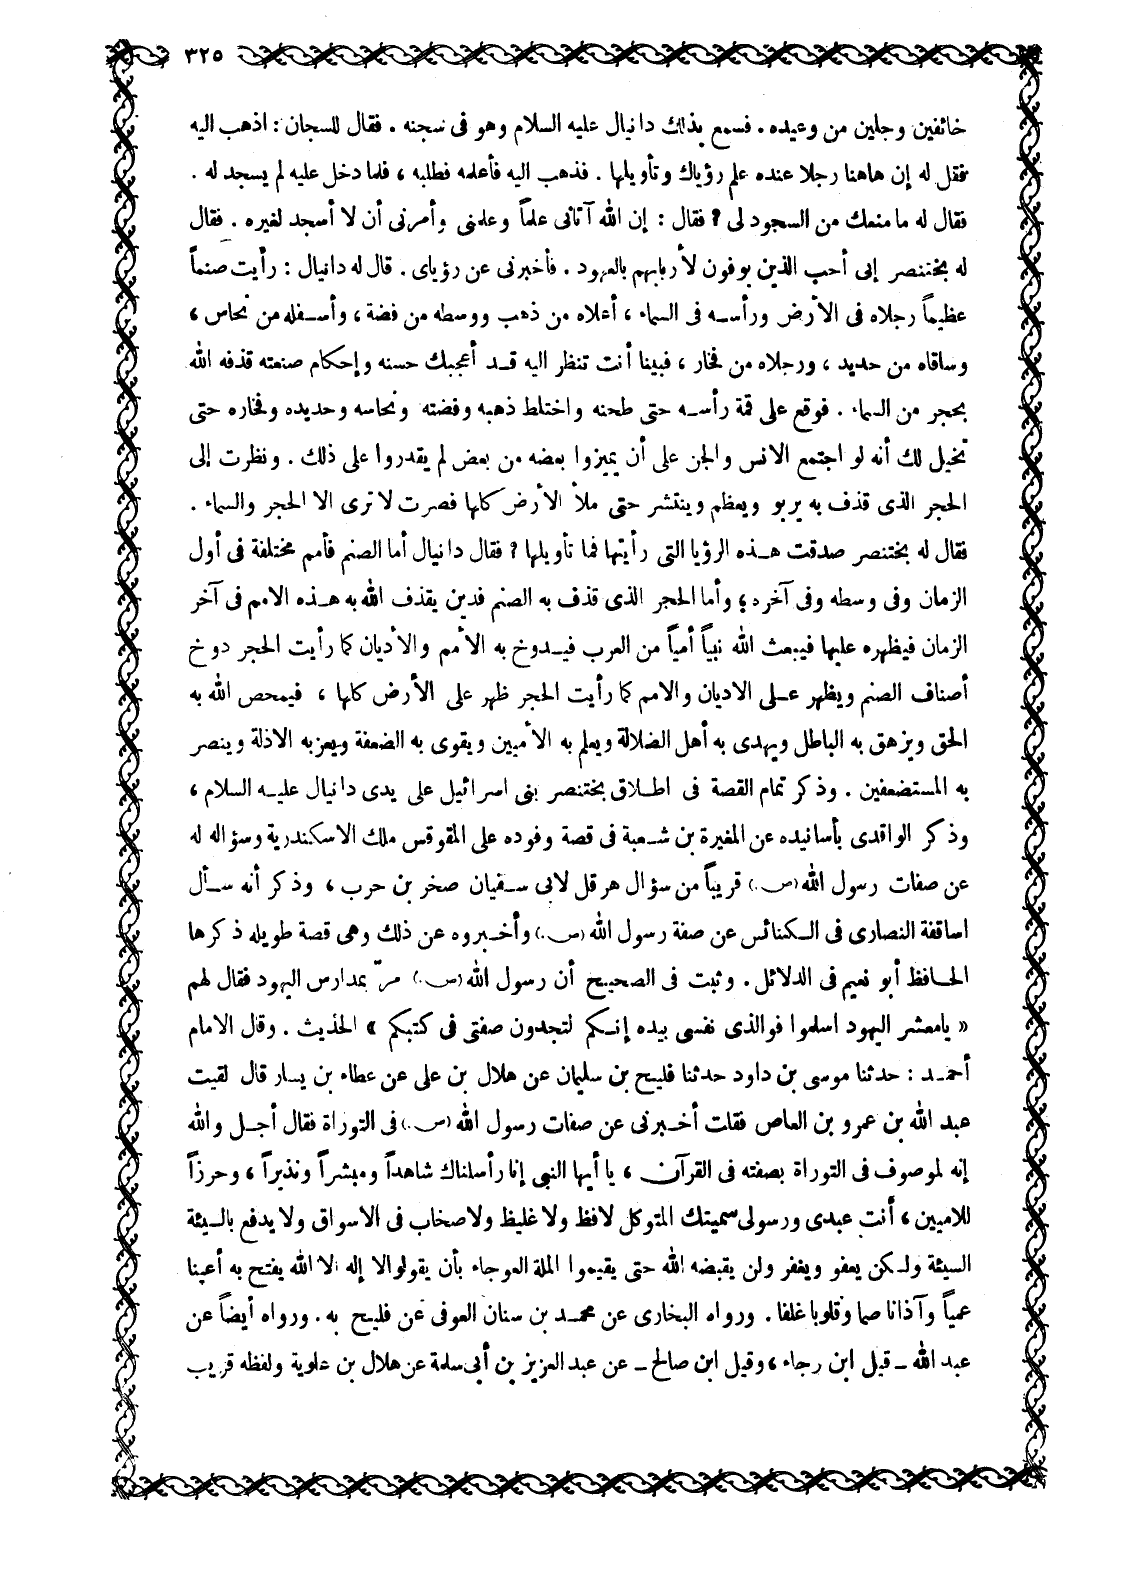 ٣٢٥
خائفين وجلين من وعيده. فسمع بذلك دانيال عليه السلام وهو فى سجنه . فقال للسجان : اذهب اليه
فقل له إن هاهنا رجلا عنده علم رؤياك وتأويلها . فذهب اليه فأعلمه فطلبه ، فلما دخل عليه لم يسجد له .
فقال له ما منعك من السجود لى ؟ فقال : إن الله آتانى علماً وعلمنى وأمرنى أن لا أسجد لغيره . فقال
له بختنصر إنى أحب الذين يوفون لأربابهم بالعهود . فأخبرنى عن رؤياى . قال له دانيال : رأيت صنماً
عظيماً رجلاه فى الأرض ورأسه فى السماء ، أعلاه من ذهب ووسطه من فضة ، وأسفله من نحاس ،
وساقاه من حديد ، ورجلاه من فخار ، فبينا أنت تنظر اليه قد أعجبك حسنه وإحكام صنعته قذفه الله
بحجر من السماء . فوقع على قمة رأسه حتى طحنه واختلط ذهبه وفضته ونحاسه وحديده وفخاره حتى
تخيل لك أنه لو اجتمع الانس والجن على أن يميزوا بعضه من بعض لم يقدروا على ذلك . ونظرت إلى
الحجر الذى قذف به يربو ويعظم وينتشر حتى ملأ الأرض كلها فصرت لا ترى الا الحجر والسماء .
فقال له بختنصر صدقت هذه الرؤيا التى رأيتها فما تأويلها ؟ فقال دانيال أما الصنم فأمم مختلفة فى أول
الزمان وفى وسطه وفى آخره ؛ وأما الحجر الذى قذف به الصنم فدين يقذف الله به هذه الامم فى آخر
الزمان فيظهره عليها فيبعث الله نبياً أمياً من العرب فيدوخ به الأمم والأديان كما رأيت الحجر دوخ
أصناف الصنم ويظهر على الاديان والامم كما رأيت الحجر ظهر على الأرض كلها ، فيمحص الله به
الحق ويزهق به الباطل ويهدى به أهل الضلالة ويعلم به الأميين ويقوى به الضعفة ويعز به الاذلة وينصر
به المستضعفين . وذكر تمام القصة فى اطلاق بختنصر بنى اسرائيل على يدى دانيال عليه السلام ،
وذكر الواقدى بأسانيده عن المغيرة بن شعبة فى قصة وفوده على المقوقس ملك الاسكندرية وسؤاله له
عن صفات رسول الله (ص.) قريباً من سؤال هرقل لابى سفيان صخر بن حرب ، وذكر أنه سأل
اساقفة النصارى فى الكنائس عن صفة رسول الله (ص.) وأخبروه عن ذلك وهى قصة طويله ذكرها
الحافظ أبو نعيم فى الدلائل . وثبت فى الصحيح أن رسول الله (ص.) مرّ بمدارس اليهود فقال لهم
« يامعشر اليهود اسلموا فوالذى نفسى بيده إنكم لتجدون صفتى فى كتبكم » الحذيث . وقال الامام
أحمد : حدثنا موسى بن داود حدثنا فليح بن سليمان عن هلال بن على عن عطاء بن يسار قال لقيت
عبد الله بن عمرو بن العاص فقلت أخبرنى عن صفات رسول الله (ص.) فى التوراة فقال أجل والله
إنه لموصوف فى التوراة بصفته فى القرآن ، يا أيها النبى إنا رأسلناك شاهداً ومبشراً ونذيراً ، وحرزاً
للاميين ، أنت عبدى ورسولى سميتك المتوكل لا فظ ولا غليظ ولا صخاب فى الاسواق ولا يدفع بالسيئة
السيئة ولكن يعفو ويغفر ولن يقبضه الله حتى يقيموا الملة العوجاء بأن يقولوا لا إله الا الله يفتح به أعينا
عمياً وآذانا صما وقلوبا غلفا . ورواه البخارى عن محمد بن سنان العوفى عن فليح به . ورواه أيضاً عن
عبد الله ــ قيل ابن رجاء ، وقيل ابن صالح ــ عن عبد العزيز بن أبى سلمة عن هلال بن علوية ولفظه قريب